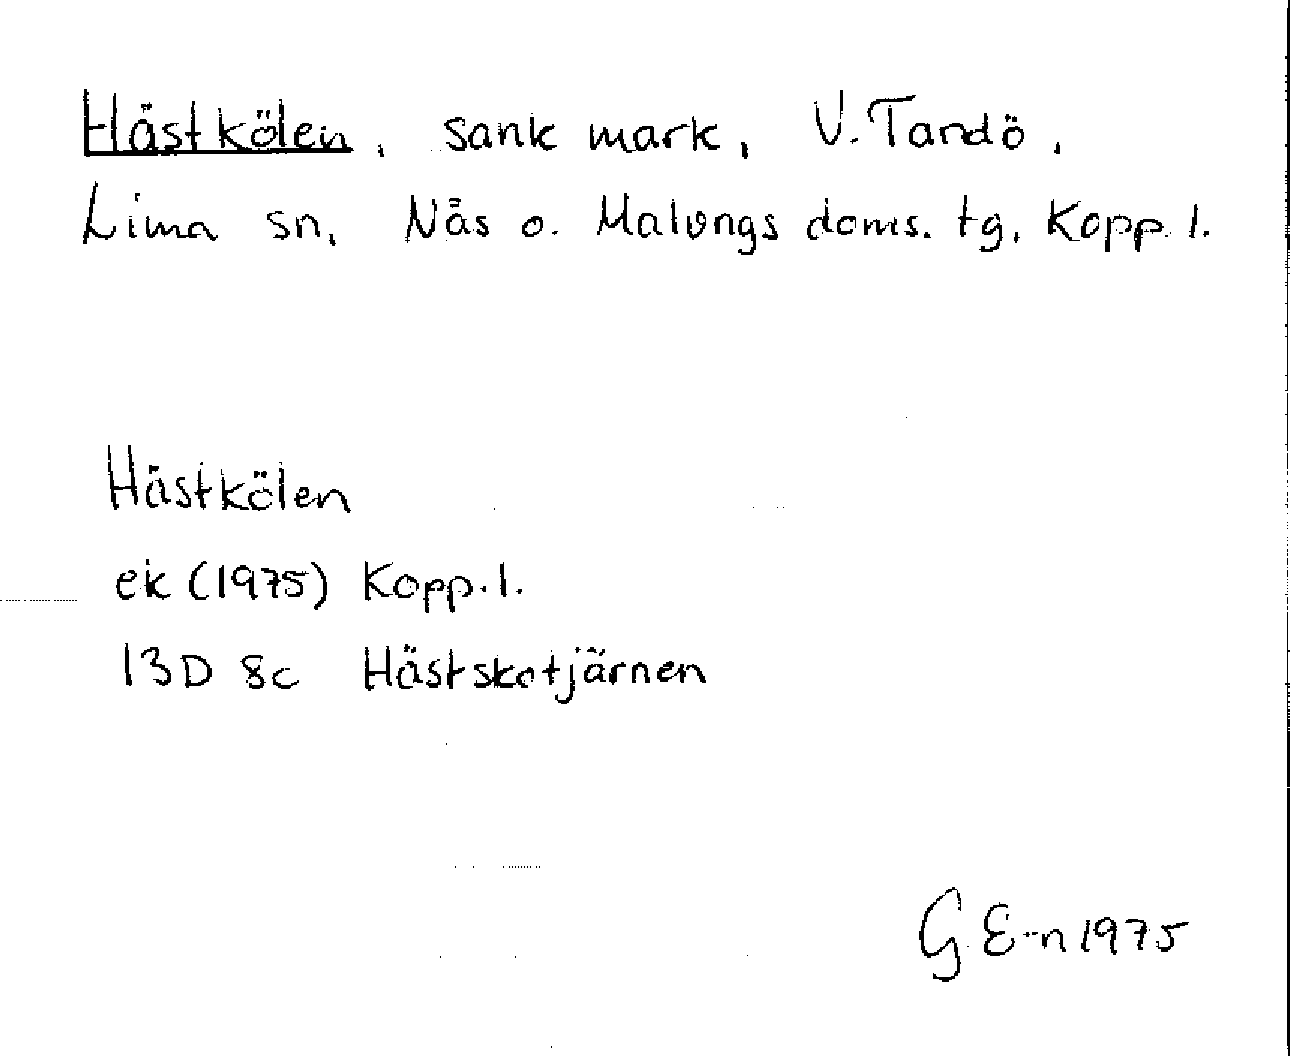 Hästkölen, sank mark, V. Tandö,
Lima sn, Nås o. Malungs doms. tg, Kopp. l.
Hästkölen
ek (1975) Kopp. l.
13D 8c Hästskotjärnen
G E-n 1975